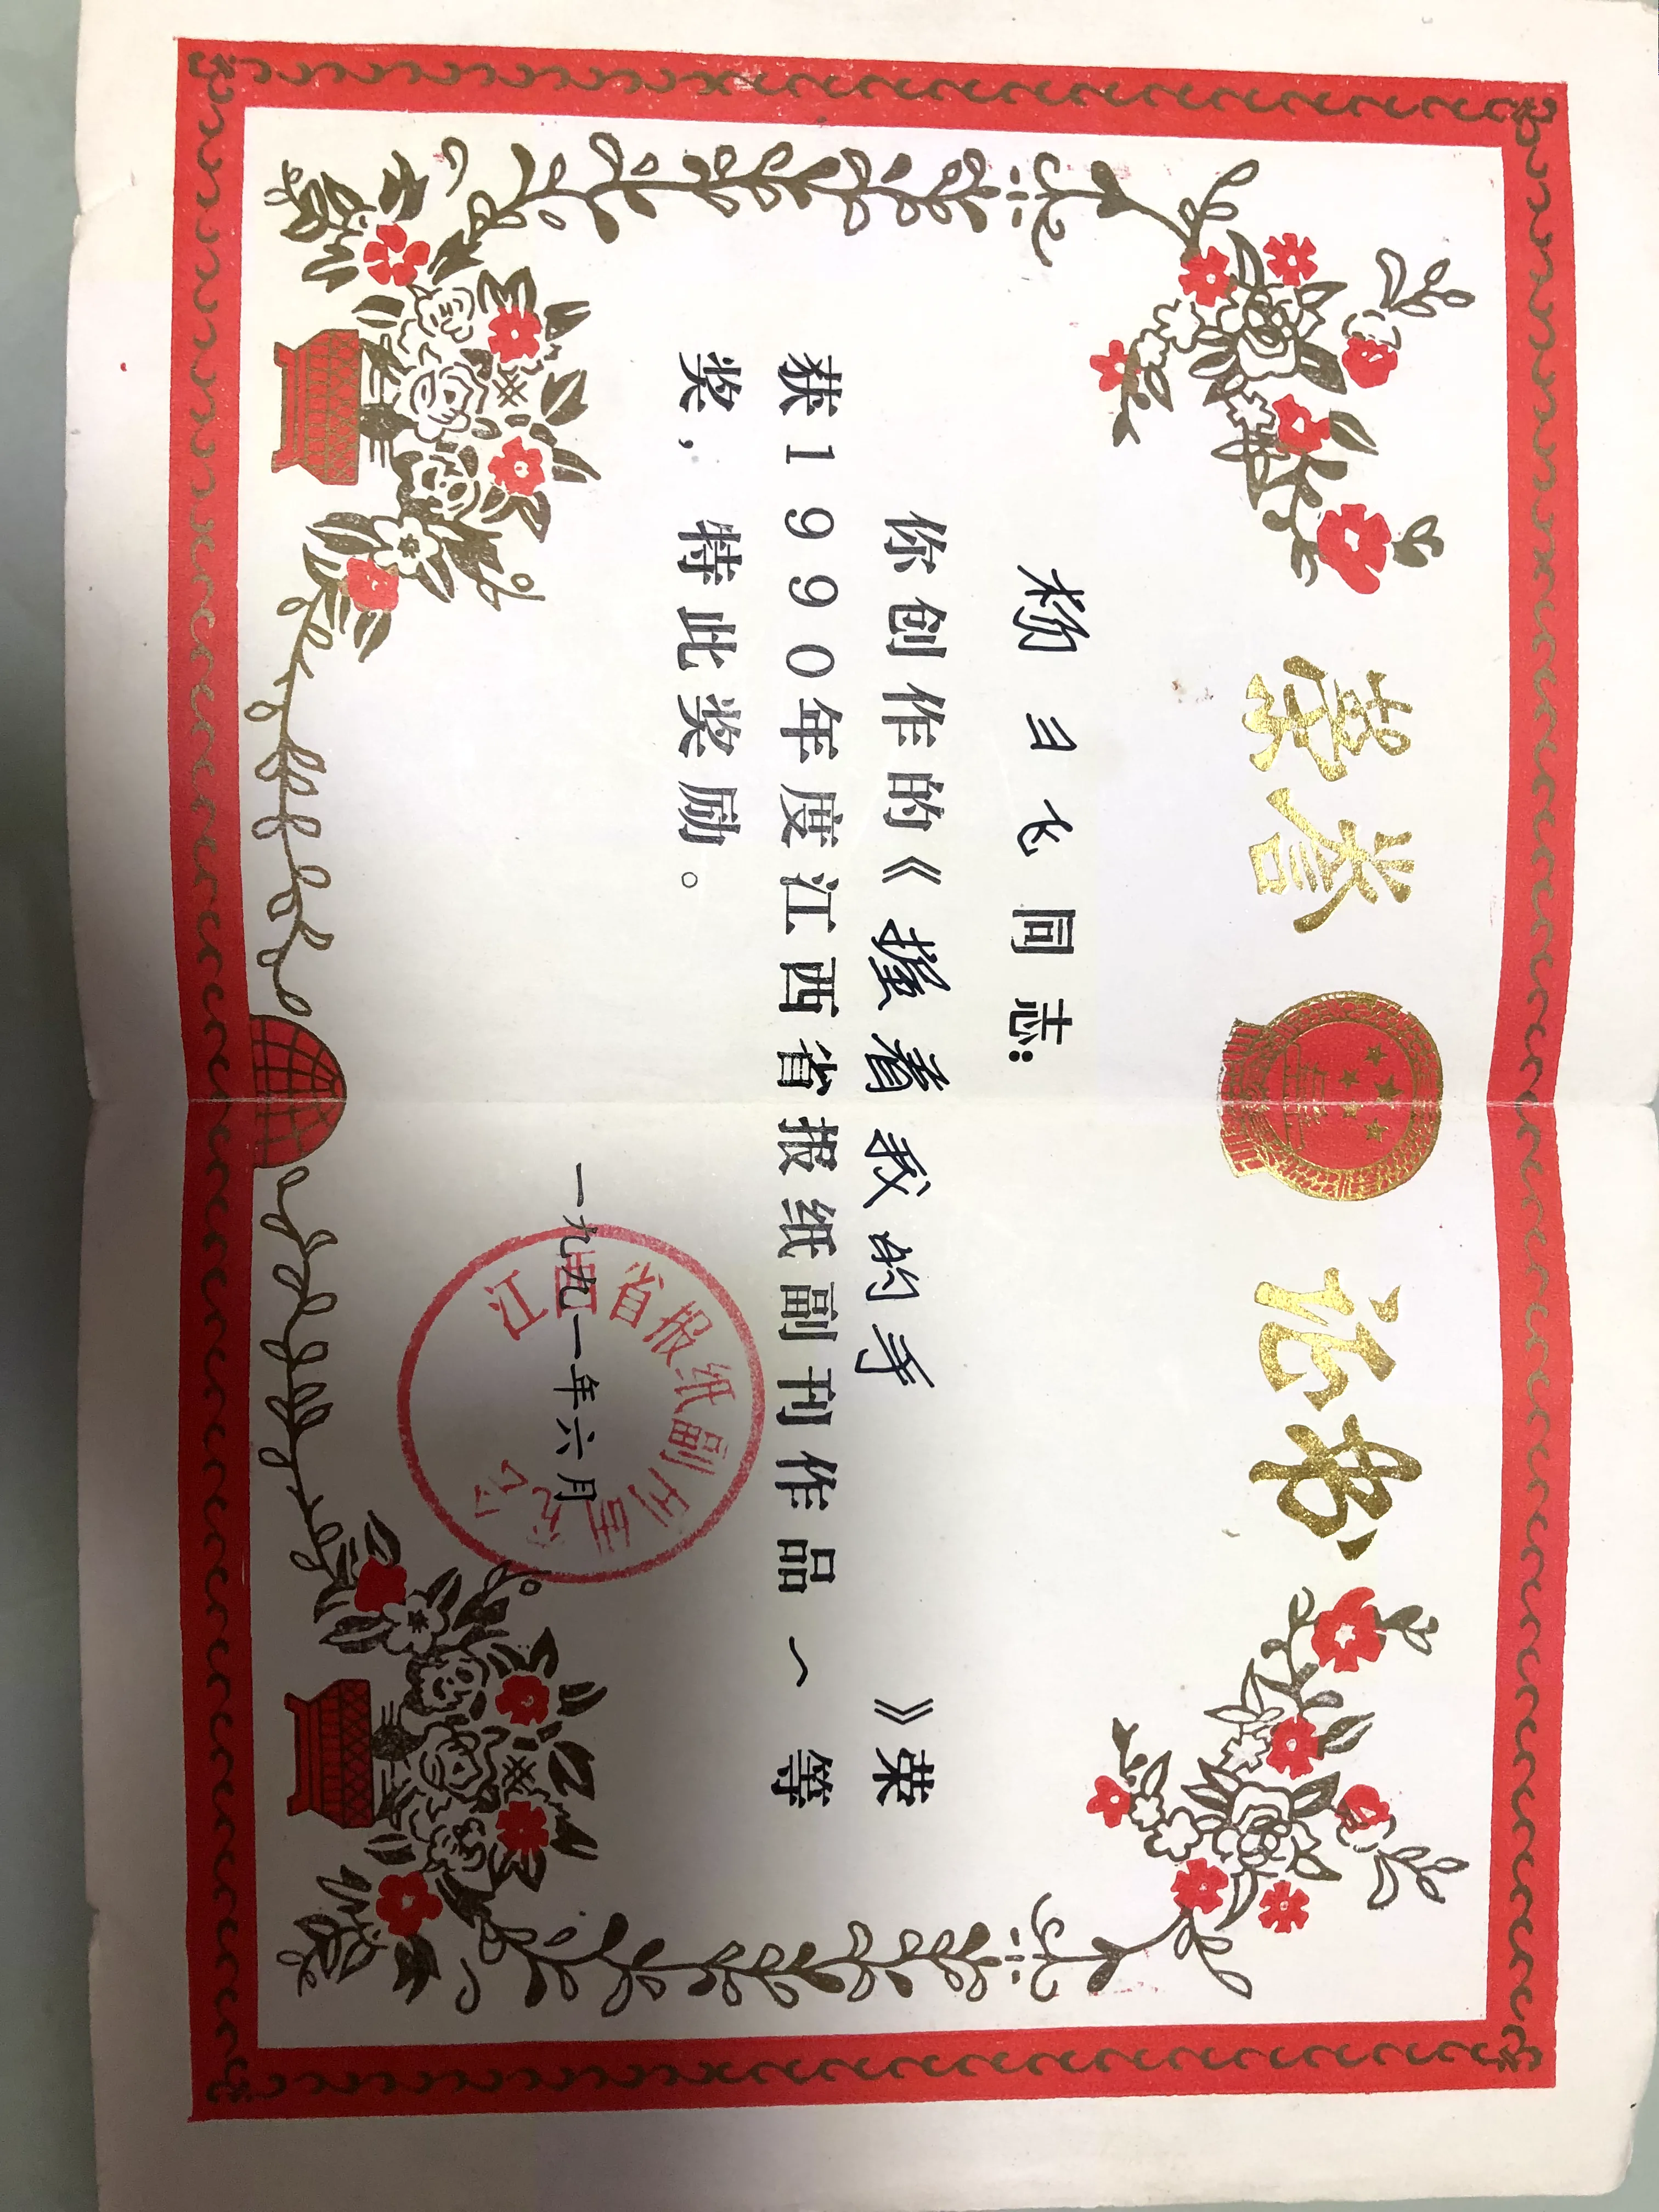 荣誉证书
杨彐飞同志：
你创作的《握着我的手》荣
获1990年度江西省报纸副刊作品一等
奖，特此奖励。
江西省报纸副刊研究会
一九九一年六月